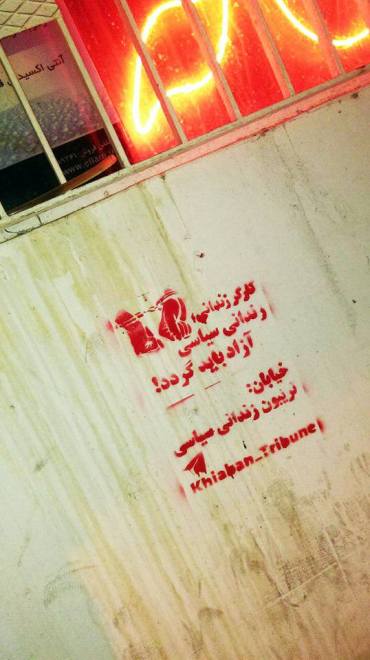 آنتی اکسیدی
کارگر زندانی،
زندانی سیاسی
آزاد باید گردد!
خیابان:
تریبون زندانی سیاسی
Khiaban_Tribune